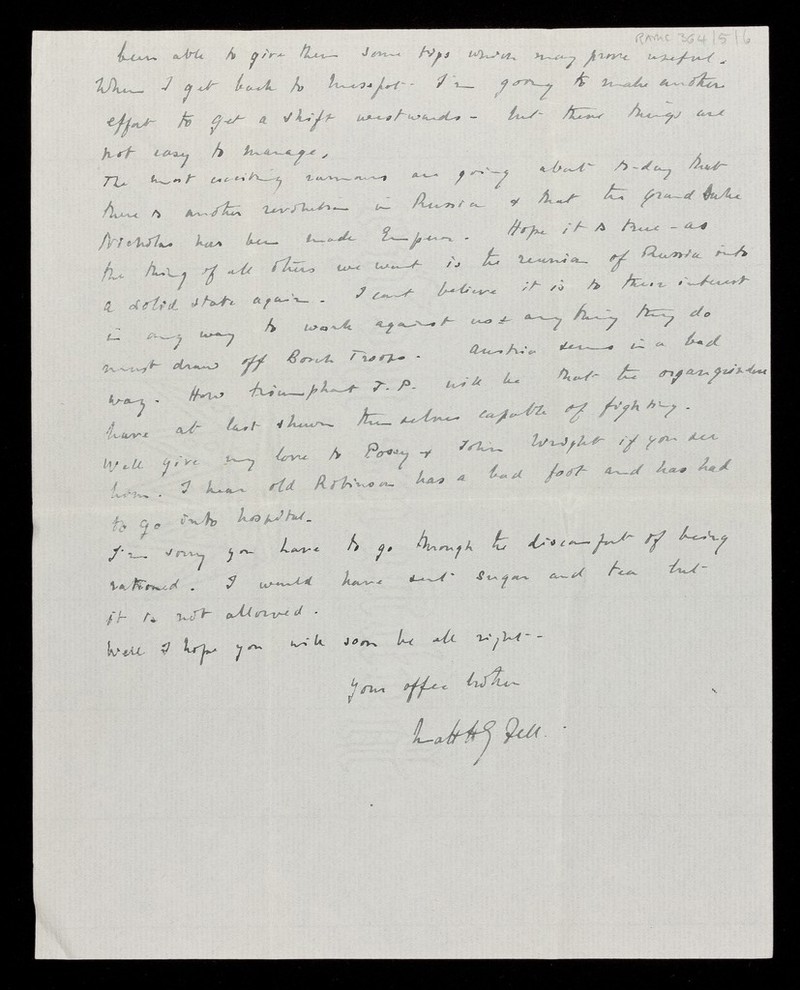 RAMC 364/5/6
been able to give them some tips which may prove useful.
When I get back to Mesopot- I'm going to make another
effort to get a shift westwards - but these things are
not easy to manage.
The most exciting rumours are going about to-day that
there is another revolution in Russia & that the Grand Duke
Nicholas has been made Emperor. Hope it is true - as
the thing of all others we want is the reunion of Russia into
a solid state again. I cant believe it is to their interest
in any way to work against us & any thing they do
must draw off Bosch Troops. Austria seems in a bad
way. How triumphant J.P. will be that the organgrinders
have at last shewn themselves capable of fighting.
Well give my love to Possy & John Wright if you see
him. I hear old Robinson has a bad foot and has had
to go into hospital.
I'm sorry you have to go through the discomfort of being
rationed. I would have sent sugar and tea but
it is not allowed.
Well I hope you will soon be all right -
your affec brother
Matt H G Fell.